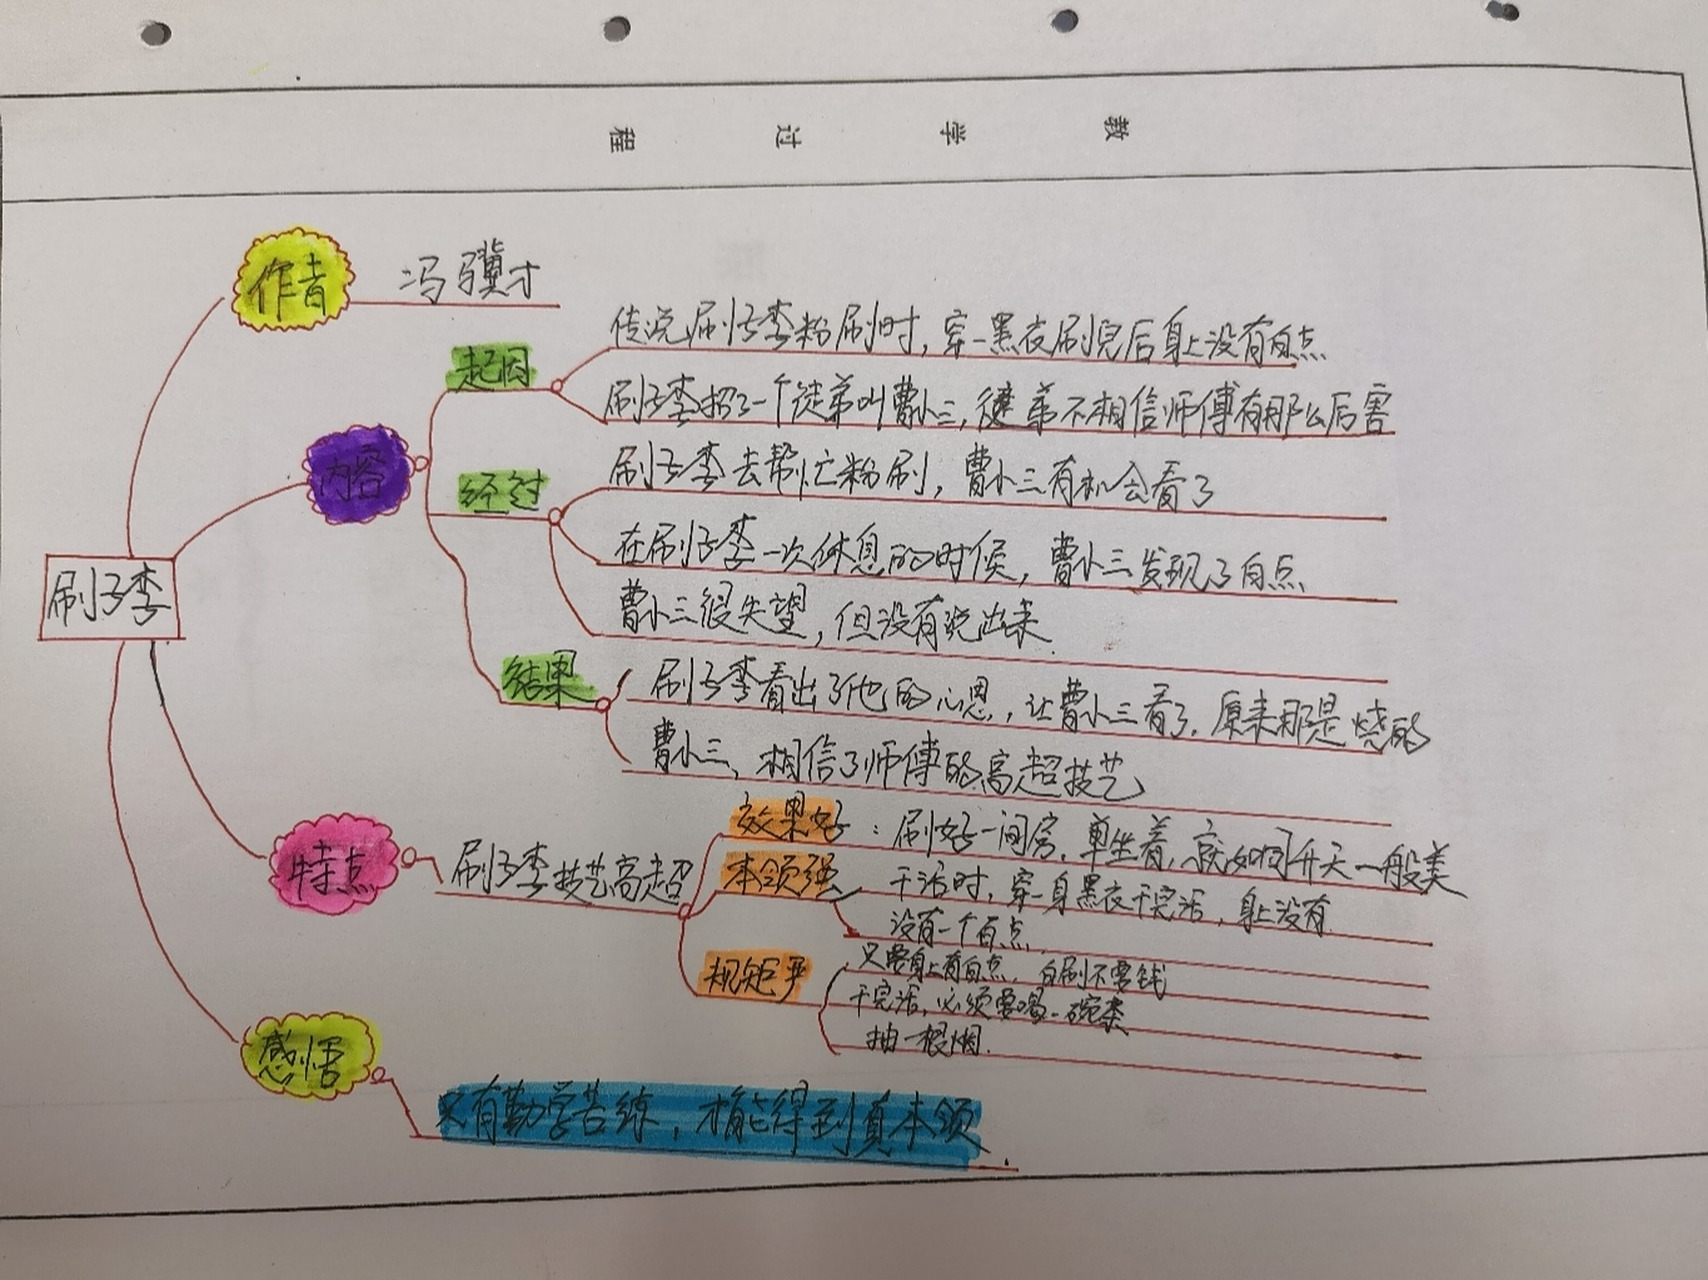 教学过程
作者
冯骥才
刷子李
内容
起因
传说刷子李粉刷时，穿一黑衣刷完后身上没有白点
刷子李招了一个徒弟叫曹小三，徒弟不相信师傅有那么厉害
经过
刷子李去帮忙粉刷，曹小三有机会看了
在刷子李一次休息的时候，曹小三发现了白点
曹小三很失望，但没有说出来.
结果
刷子李看出了他的心思，让曹小三看了，原来那是烧的
曹小三、相信了师傅的高超技艺
特点
刷子李技艺高超
效果好：刷好一间房，单坐着，就如同升天一般美
本领强
干活时，穿一身黑衣干完活，身上没有
没有一个白点
规矩严
只要身上有白点，白刷不要钱
干完活，必须要喝一碗茶
抽一根烟.
感悟
只有勤学苦练，才能得到真本领.